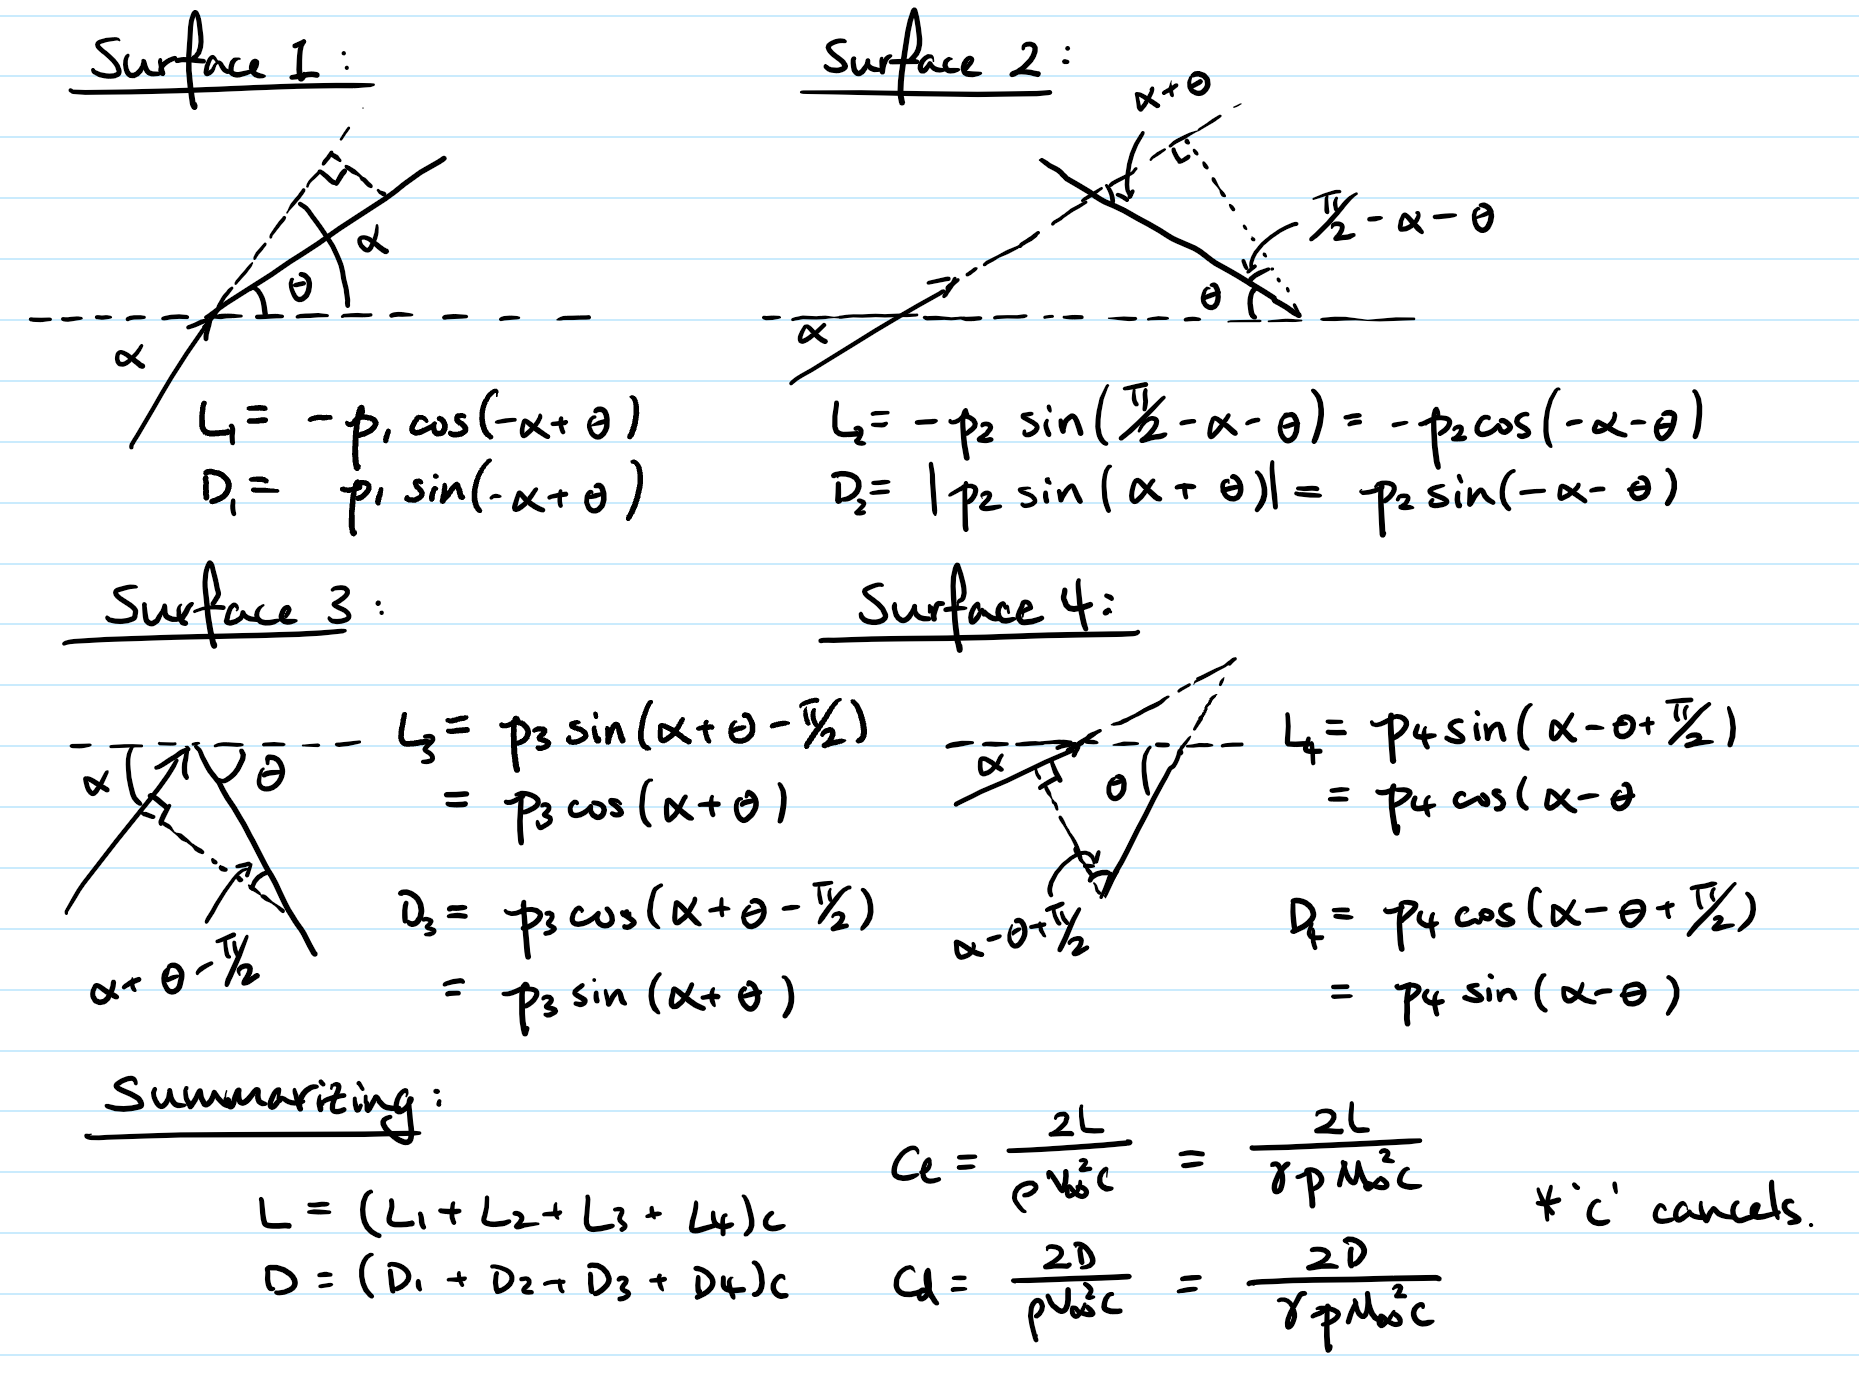 Surface 1 :
α
θ
α
L₁ = -p₁ cos(-α+ θ)
D₁ = p₁ sin(-α+ θ)
Surface 2 :
α+θ
π/2 - α - θ
θ
α
L₂= -p₂ sin(π/2 - α - θ) = -p₂cos(-α-θ)
D₂= |p₂ sin (α + θ)| = p₂ sin(-α- θ)
Surface 3 :
α
θ
α+ θ - π/2
L₃ = p₃ sin(α+ θ - π/2)
= p₃ cos(α+θ)
D₃ = p₃ cos(α+θ - π/2)
= p₃ sin (α+ θ)
Surface 4:
α
θ
α-θ+π/2
L₄= p₄ sin( α-θ+π/2)
= p₄ cos( α-θ
D₄ = p₄ cos(α-θ+π/2)
= p₄ sin ( α-θ )
Summarizing :
L = (L₁ + L₂ + L₃ + L₄)c
D = (D₁ + D₂ + D₃ + D₄)c
Cl = 2L / ρV∞²c = 2L / γpM∞²c
Cd = 2D / ρV∞²c = 2D / γpM∞²c
* 'c' cancels.